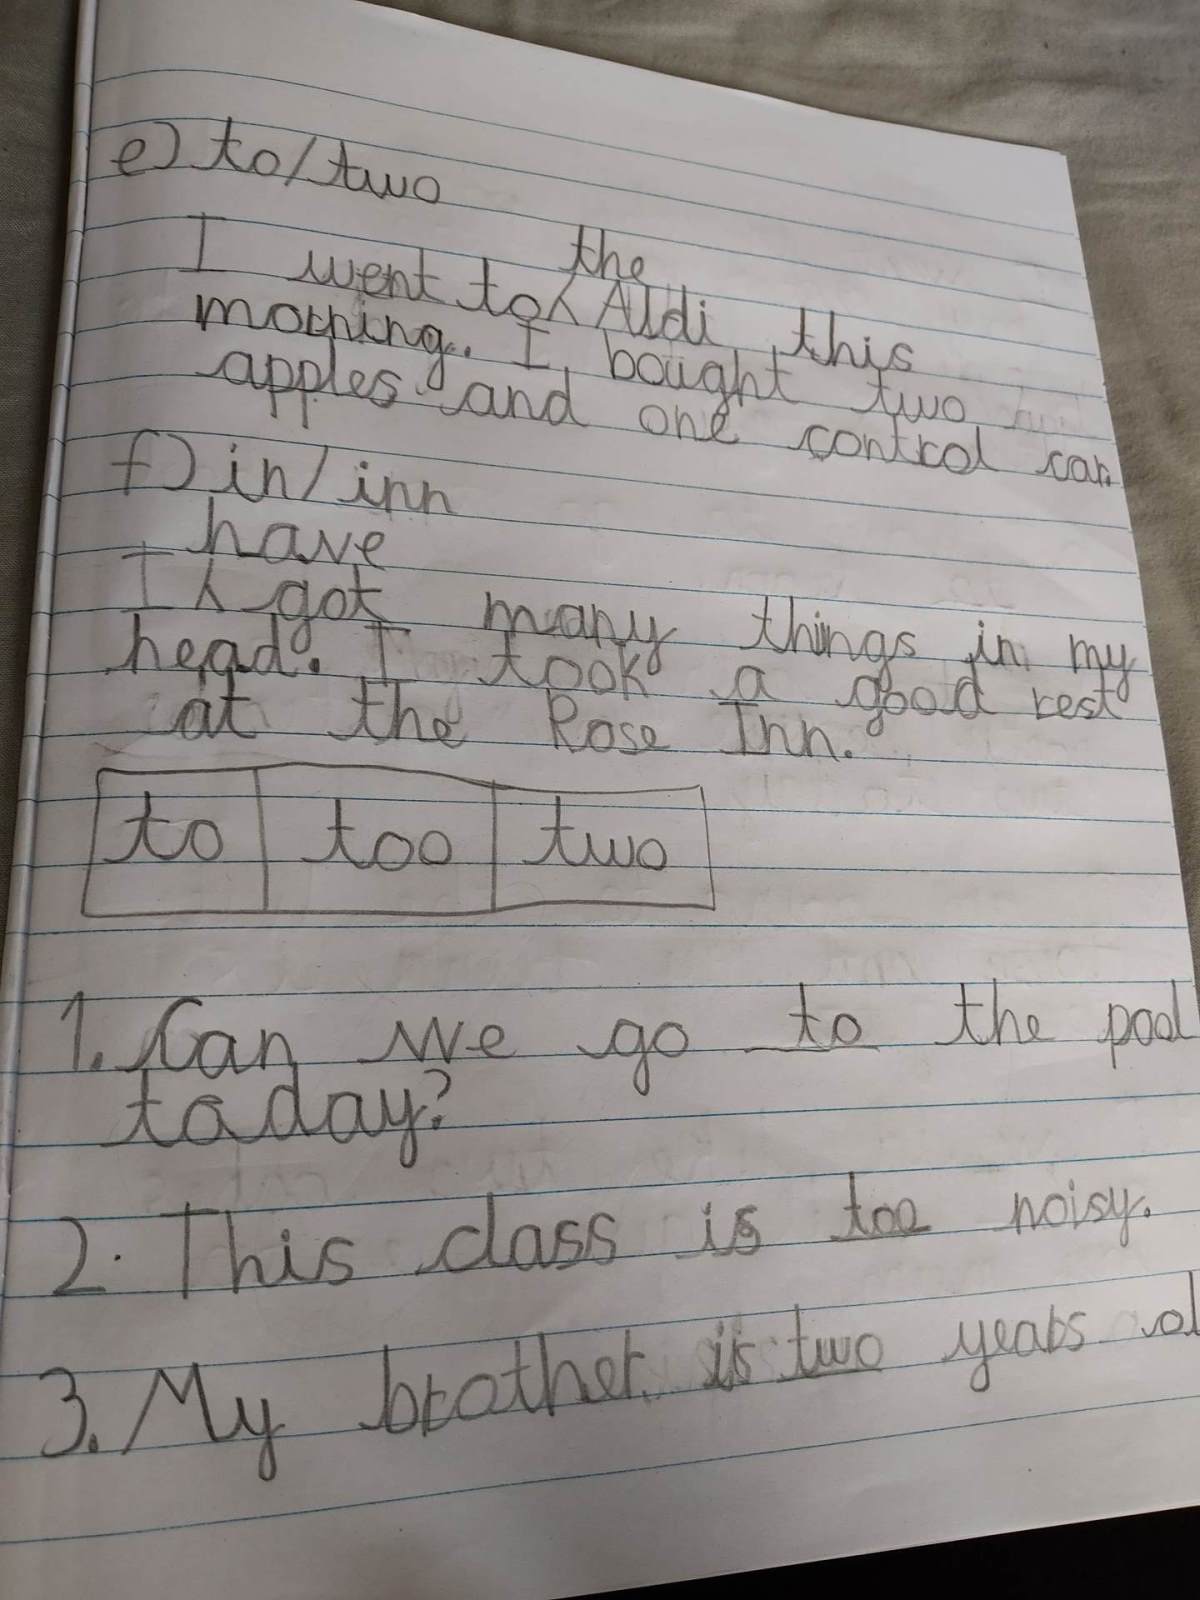 e) to/two
the
I went to^ Aldi this
morning. I bought two
apples and one control car.
f) in/inn
have
I ^ got many things in my
head. I took a good rest
at the Rose Inn.
to too two
1. Can we go to the pool
today?
2. This class is too noisy.
3. My brother is two years ol